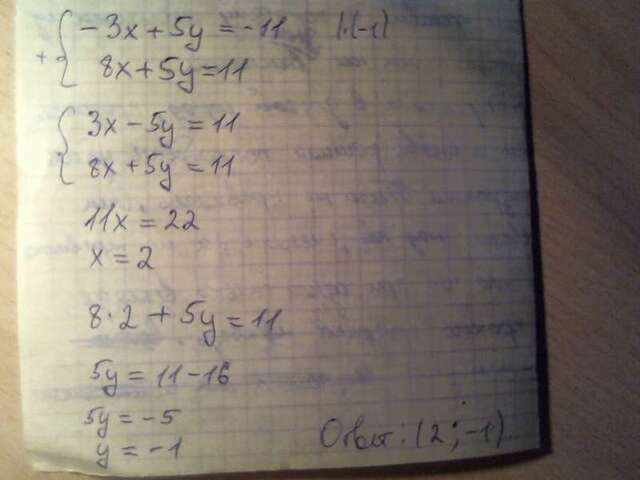 + { -3x + 5y = -11 |·(-1)
8x + 5y = 11
{ 3x - 5y = 11
8x + 5y = 11
11x = 22
x = 2
8·2 + 5y = 11
5y = 11 - 16
5y = -5
y = -1
Ответ: (2; -1).